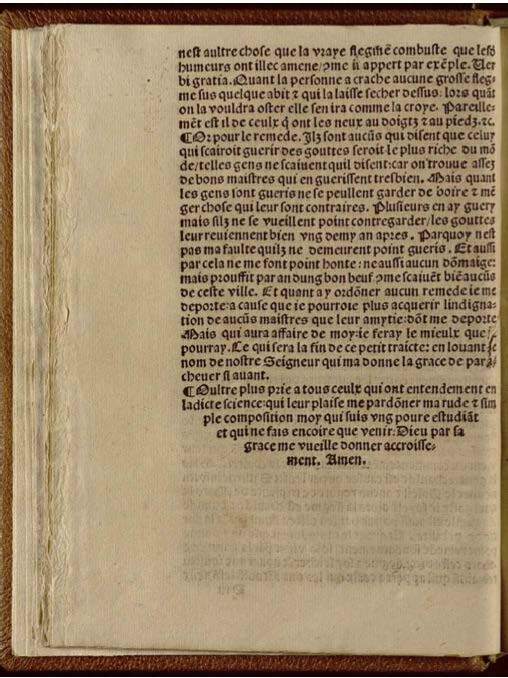 nest aultre chose que la vraye flegme combuste que lesd
humeurs ont illec amene/ꝯme il appert par exẽple. Uer
bi gratia. Quant la personne a crache aucune grosse fleg-
me sus quelque abit ⁊ qui la laisse secher dessus: lors quãt
on la vouldra oster elle sen ira comme la croye. Pareille-
mẽt est il de ceulx q̃ ont les neux au doigtz ⁊ au piedz.⁊c.
¶Or pour le remede. Ilz sont aucũs qui disent que celuy
qui scairoit guerir des gouttes seroit le plus riche du mõ
de/telles gens ne scaiuent quil disent:car on trouue assez
de bons maistres qui en guerissent tresbien. Mais quant
les gens sont gueris ne se peullent garder de boire ⁊ mẽ
ger chose qui leur sont contraires. Plusieurs en ay guery
mais silz ne se vueillent point contregarder/les gouttes
leur reuiennent bien vng demy an apres. Parquoy nest
pas ma faulte quilz ne demeurent point gueris. Et aussi
par cela ne me font point honte: ne aussi aucun dõmaige:
mais prouffit par an dung bon beuf ꝯme scaiuẽt biẽ aucũs
de ceste ville. Et quant a y ordõner aucun remede ie me
deporte: a cause que ie pourroie plus acquerir lindigna-
tion de aucũs maistres que leur amytie: dõt me deporte
Mais qui aura affaire de moy:ie feray le mieulx que
pourray. Ce qui sera la fin de ce petit traicte: en louant le
nom de nostre Seigneur qui ma donne la grace de para-
cheuer si auant.
¶Oultre plus prie a tous ceulx qui ont entendement en
ladicte science:qui leur plaise me pardõner ma rude ⁊ sim
ple composition moy qui suis vng poure estudiãt
et qui ne fais encoire que venir: Dieu par sa
grace me vueille donner accroisse-
ment. Amen.